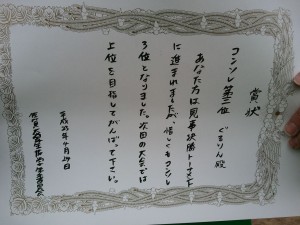 賞状
コンソレ第三位 ぐるりん殿
あなた方は見事決勝トーナメント
に進まれましたが、惜しくもコンソレ
3位となりました。次回の大会では
上位を目指してがんばって下さい。
平成23年4月29日